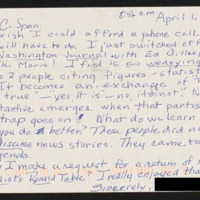 8:56 a.m. April 1,
C-Span
wish I could afford a phone call,
will have to do. I just switched off
Washington Journal with Ed Gillespie
I find it so wearying
2 people citing figures - statistics
It becomes an exchange of "it's
true" - yes, it is - no, it's not". No
emerges when that partisan
strap goes on. What do we learn
you do better? These people did not
discuss news stories. They came to
agenda.
I make a request for a return of the
lists Round Table" I really enjoyed that
Sincerely,